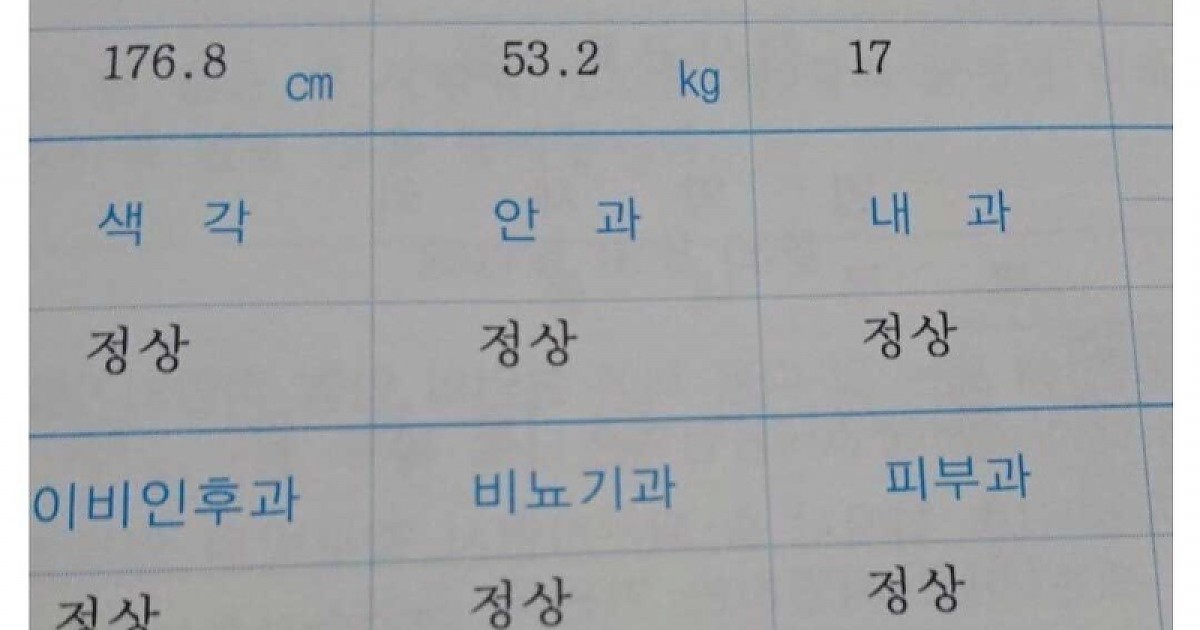 176.8 cm 53.2 kg 17
색 각 안 과 내 과
정상 정상 정상
이비인후과 비뇨기과 피부과
정상 정상 정상